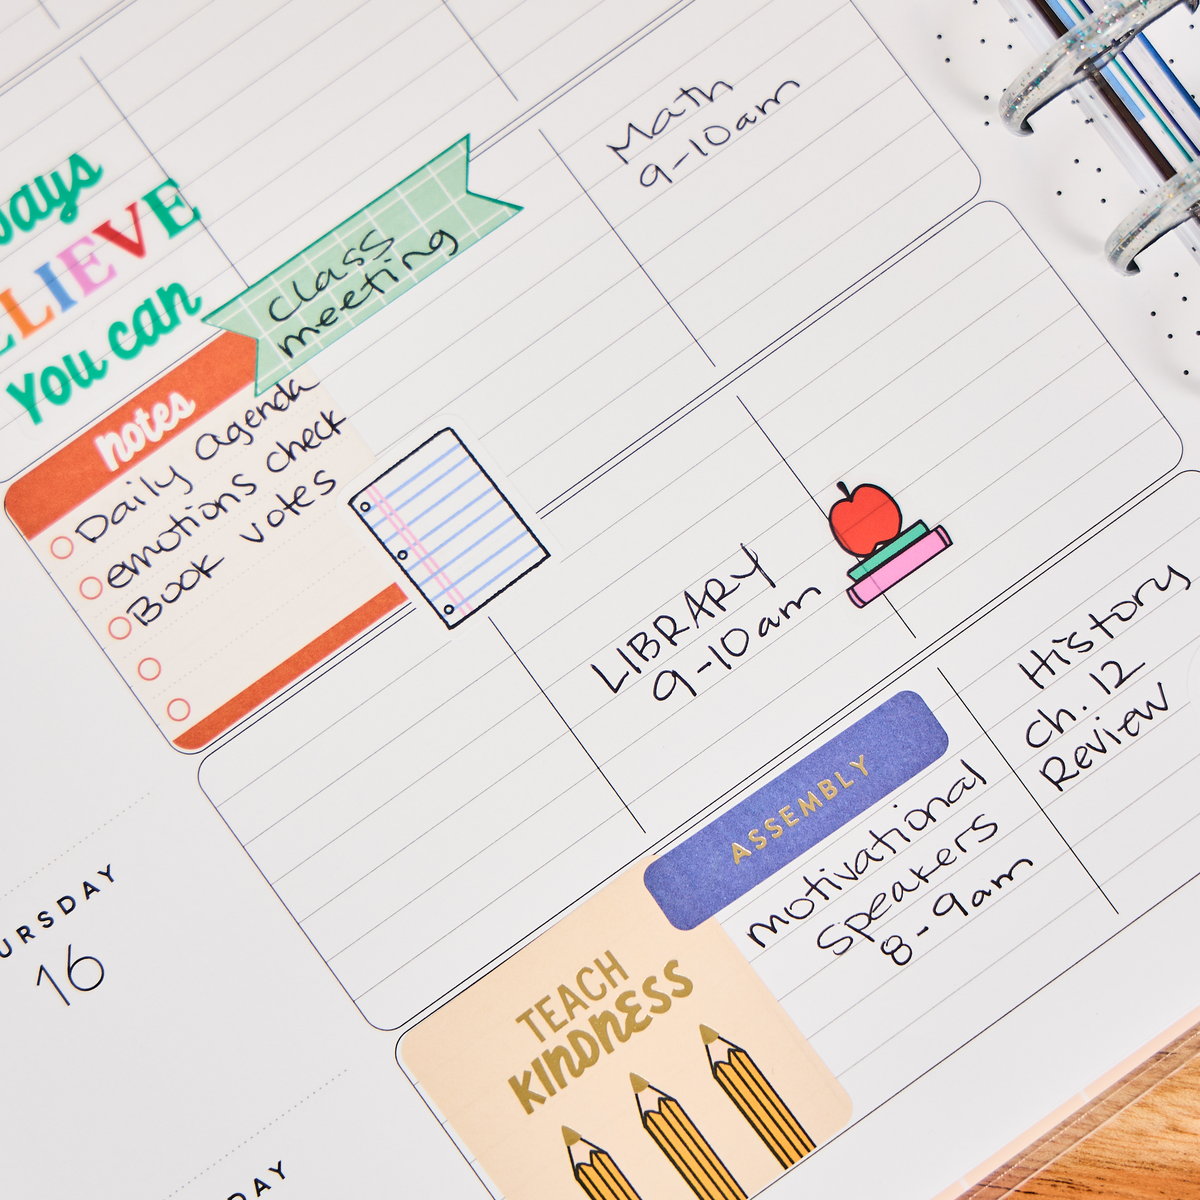 ways
ELIEVE
you can
class
meeting
Math
9-10am
notes
Daily agenda
emotions check
Book votes
LIBRARY
9-10am
History
Ch. 12
Review
ASSEMBLY
motivational
Speakers
8-9am
URSDAY
16
TEACH
KINDNESS
DAY